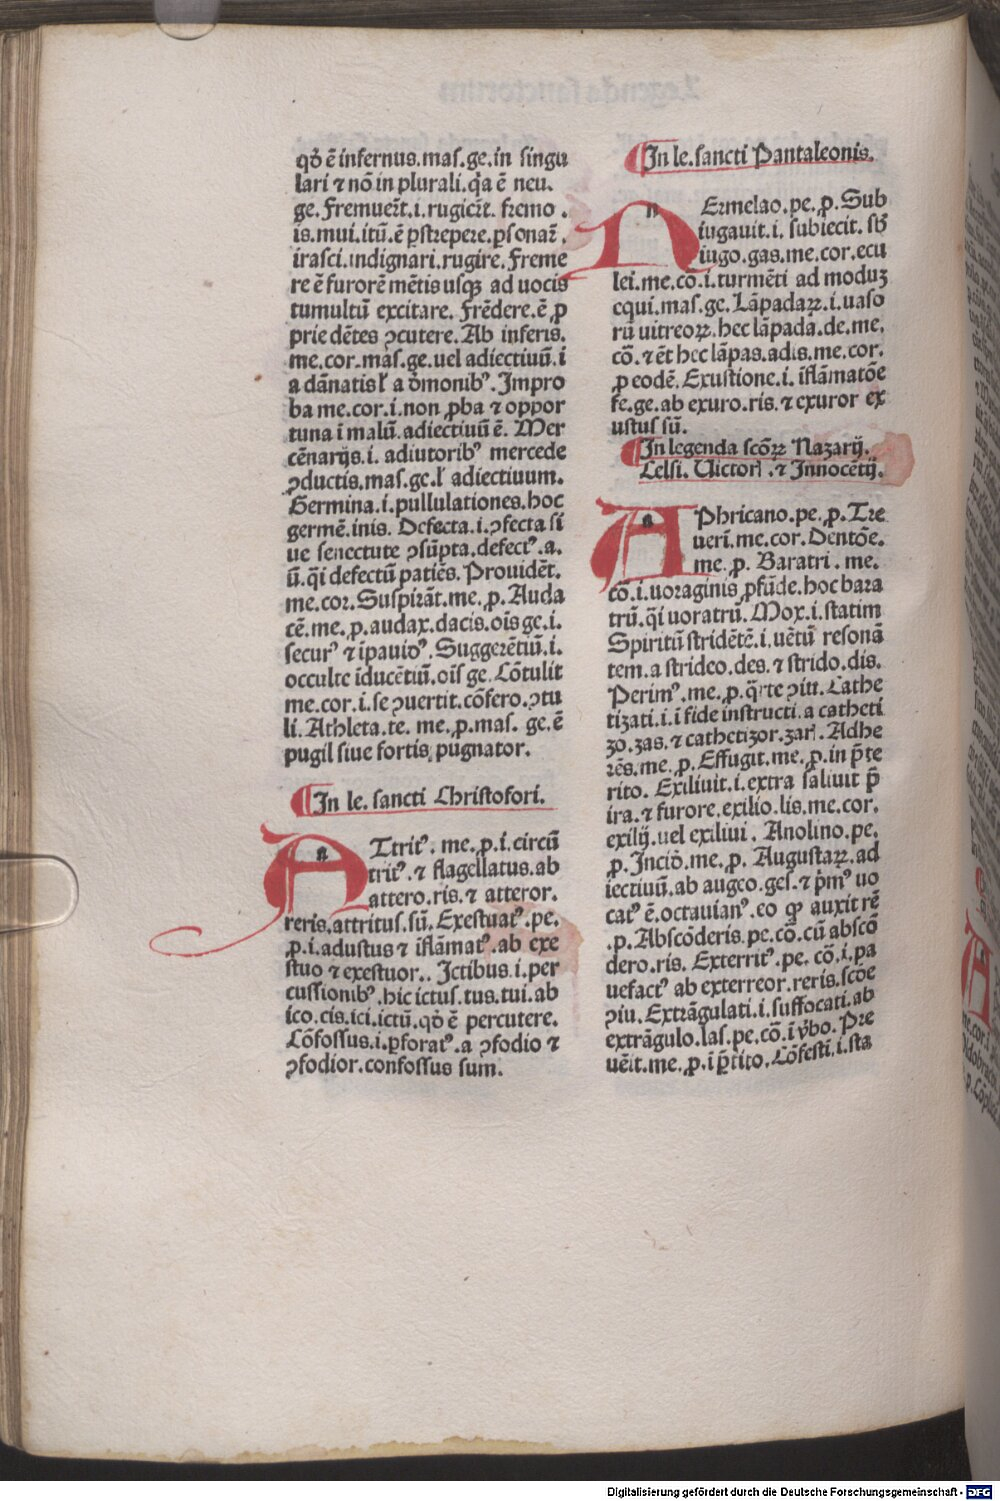 qď ē infernus.mas.ge.in singu
lari ⁊ nō in plurali.qꝛa ē neu.
ge. Fremuer̄t.i.rugier̄t. fremo .
is.mui.itū.ē ꝑstrepere.ꝑsonar̄ .
irasci.indignari.rugire. Freme
re ē furorē mētis usqꝫ ad uocis
tumultū excitare. Frēdere.ē ꝓ
prie dētes ꝯcutere. Ab inferis.
me.cor.mas.ge.uel adiectiuū.i
a dānatis ł a dmonibꝰ. Impro
ba me.cor.i.non ꝓba ⁊ oppor
tuna ī malū.adiectiuū ē. Mer
cēnarijs.i. adiutoribꝰ mercede
ꝯductis.mas.ge.ł adiectiuum.
Germina.i.pullulationes.hoc
germē.inis. Defecta.i.ꝯfecta si
ue senectute ꝯsūpta.defectꝰ.a.
ū.q̄i defectū patiēs. Prouidēt.
me.cor. Suspirāt.me.ꝓ. Auda
cē.me.ꝓ.audax.dacis.oīs ge.i.
securꝰ ⁊ īpauidꝰ. Suggerētiū.i.
occulte īducētiū.oīs ge. Cōtulit
me.cor.i.se ꝯuertit.cōfero.ꝯtu
li. Athleta.te. me.ꝓ.mas. ge.ē
pugil siue fortis pugnator.
In le. sancti Christofori.
ATtritꝰ. me.ꝓ.i.circū
tritꝰ.⁊ flagellatus.ab
attero.ris.⁊ atteror.
reris.attritus.sū. Exestuatꝰ.pe.
ꝓ.i.adustus ⁊ īflāmatꝰ.ab exe
stuo ⁊ exestuor.. Ictibus.i.per
cussionibꝰ.hic ictus.tus.tui.ab
ico.cis.ici.ictū.qď ē percutere.
Cōfossus.i.ꝑforatꝰ.a ꝯfodio ⁊
ꝯfodior.confossus sum.
In le.sancti Pantaleonis.
HErmelao.pe.ꝓ. Sub
iugauit.i. subiecit. sb̄
iugo.gas.me.cor.ecu
lei.me.cō.i.turmēti ad moduꝫ
equi.mas.ge. Lāpadaꝝ.i.uaso
rū uitreoꝝ.hec lāpada.de.me.
cō.⁊ ēt hec lāpas.adis.me.cor.
ꝓ eodē. Exustione.i. īflāmatōe
fe.ge.ab exuro.ris.⁊ exuror ex
ustus sū.
In legenda scōꝝ Nazarij.
Celsi. Uictoris .⁊ Innocētij.
APhricano.pe.ꝓ. Tre
ueri.me.cor. Dentōe.
me.ꝓ. Baratri . me.
cō.i.uoraginis ꝓfūde.hoc bara
trū.q̄i uoratrū. Mox.i.statim
Spiritū stridētē.i.uētū resonā
tem.a strideo.des.⁊ strido.dis.
Perimꝰ.me.ꝓ. Cathe
tizati.i.ī fide instructi.a catheti
zo.zas.⁊ cathetizor.zaris. Adhe
rēs.me.ꝓ. Effugit.me.ꝓ.in p̄te
rito. Exiliuit.i.extra saliuit p̄
ira.⁊ furore.exilio.lis.me.cor.
exilij.uel exiliui . Anolino.pe.
ꝓ. Incid.me.ꝓ. Augustaꝝ.ad
iectiuū.ab augeo.ges.⁊ p̄mꝰ uo
catꝰ ē.octauianꝰ.eo qꝙ auxit rē
.p. Abscōderis.pe.cō.cū abscō
dero.ris. Exterritꝰ.pe. cō.i.pa
uefactꝰ ab exterreor.reris.scōe
ꝯiu. Extrāgulati.i.suffocati.ab
extrāgulo.las.pe.cō.ī ūbo. Pre
uēit.me.ꝓ.i p̄tito. Cōfesti.i.sta